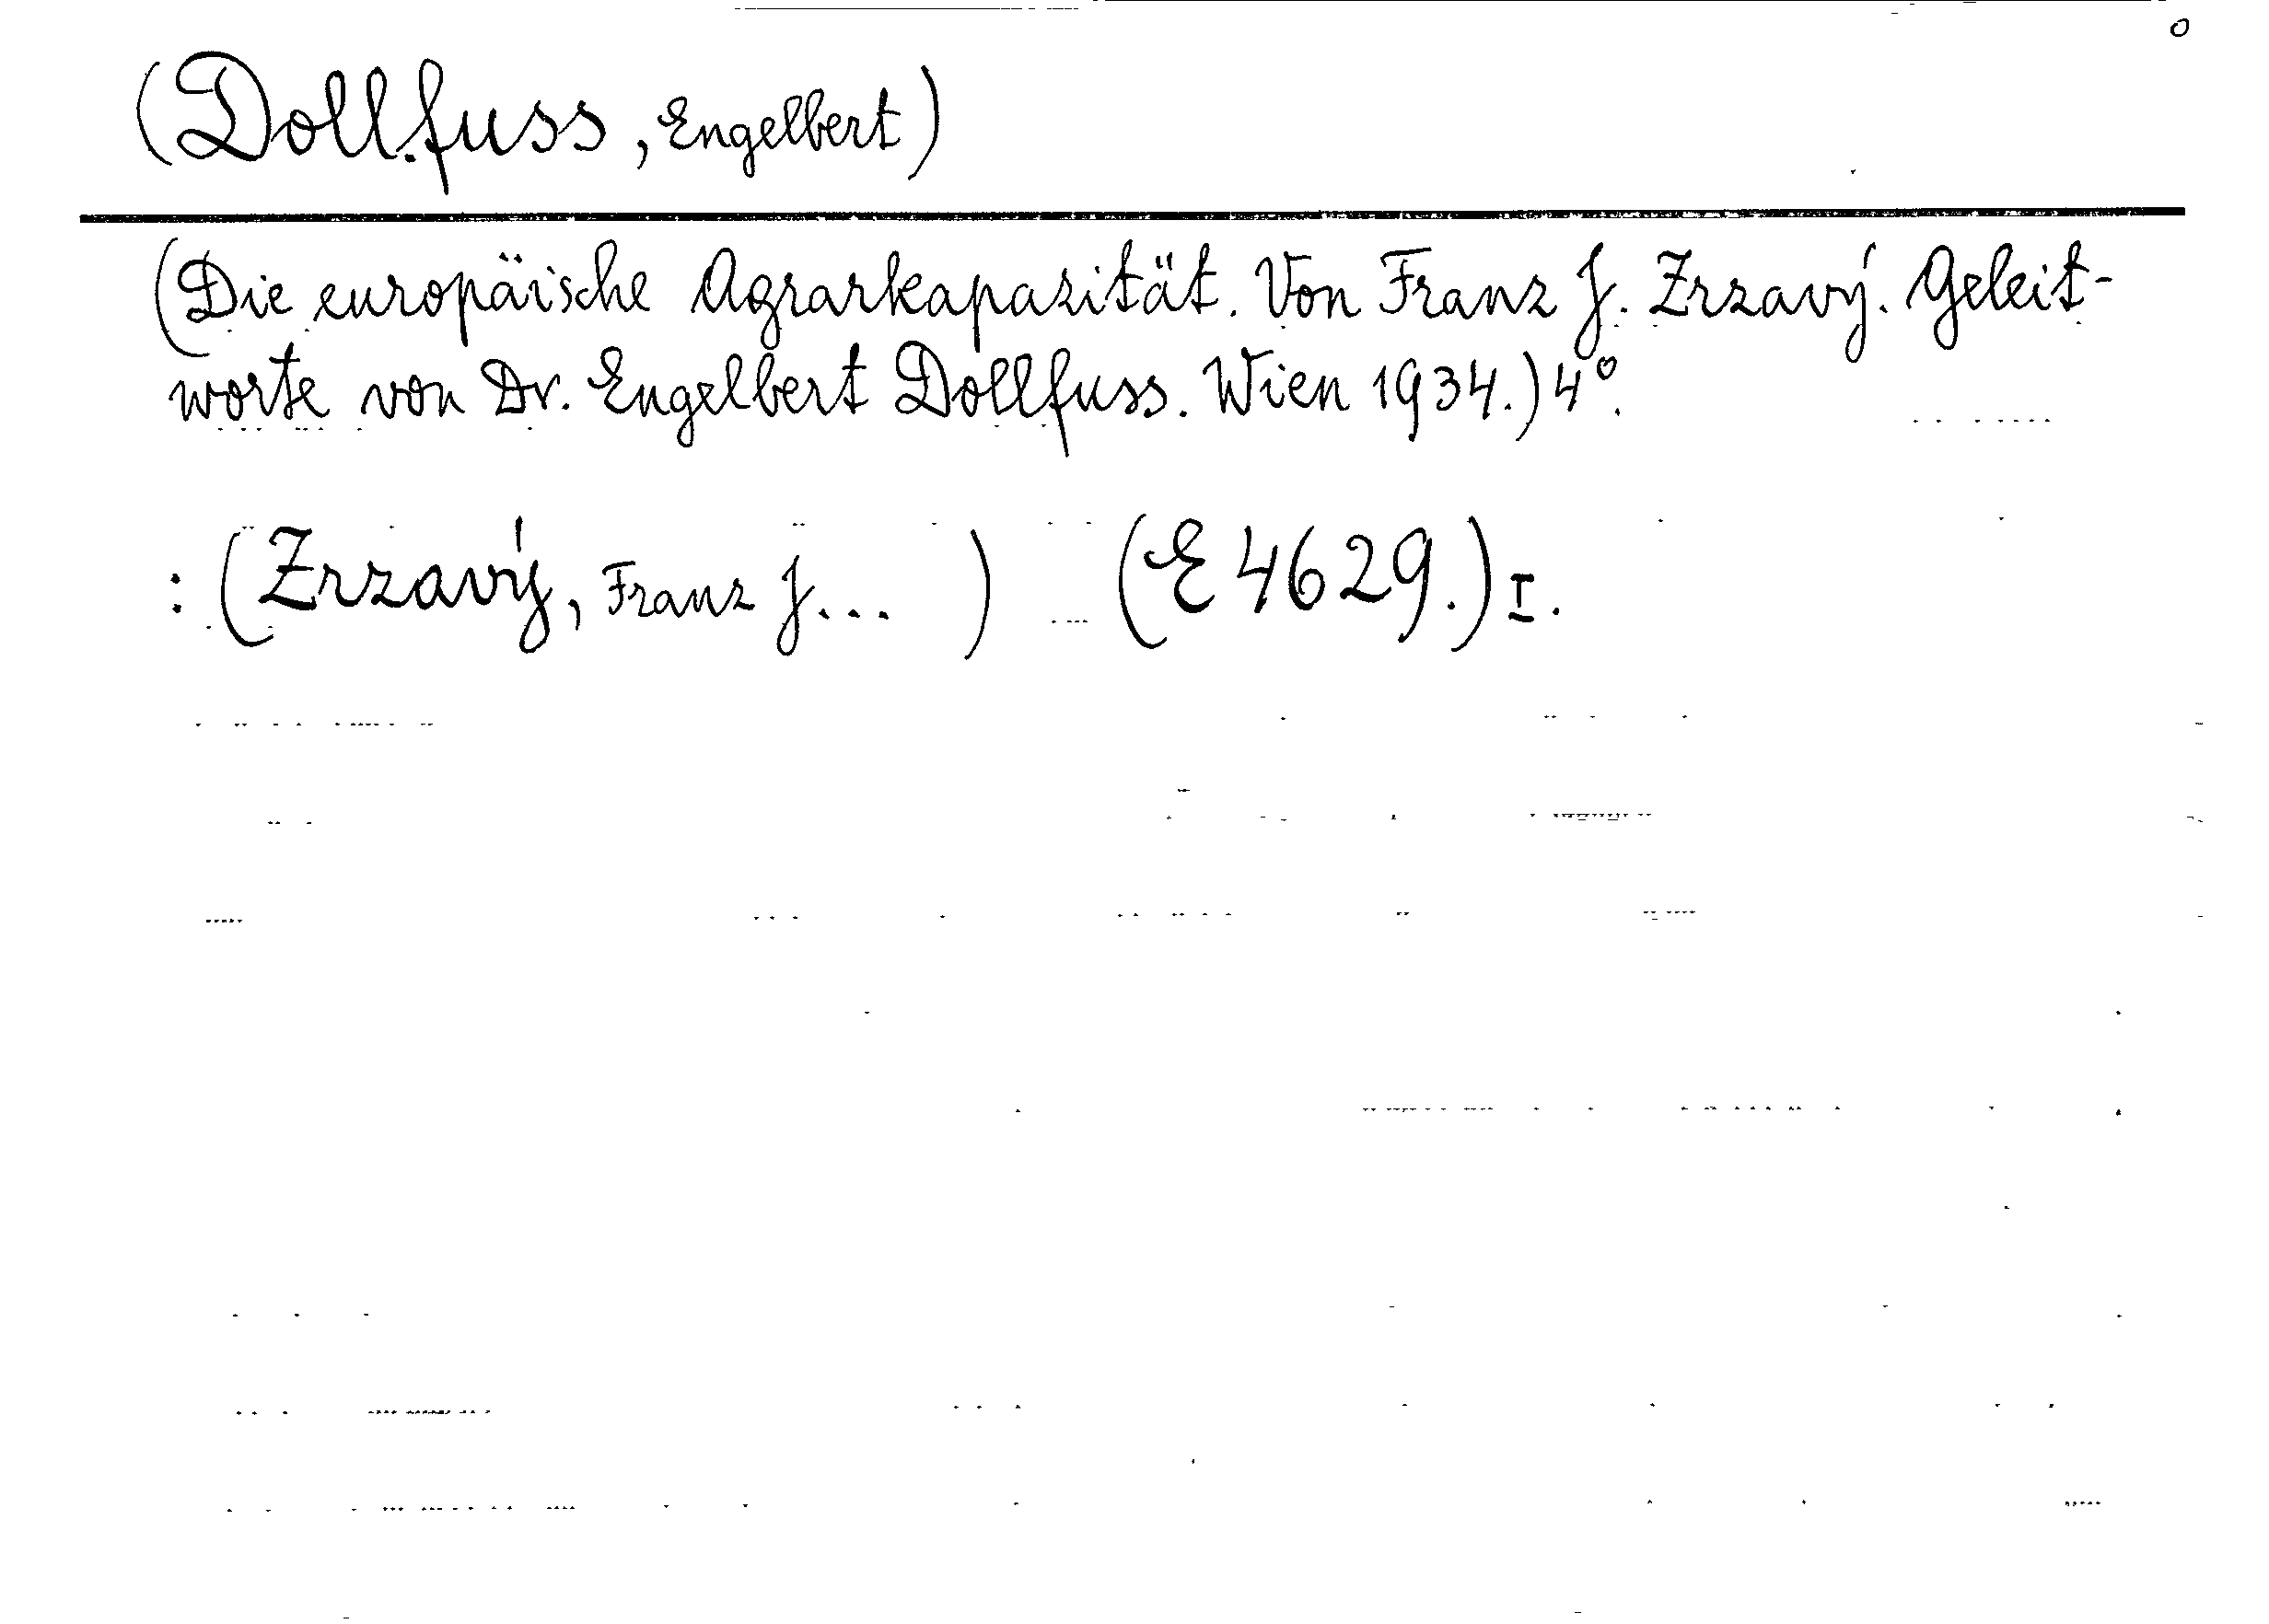 o
(Dollfuss, Engelbert)
(Die europäische Agrarkapazität. Von Franz J. Zrzavý. Geleit-
worte von Dr. Engelbert Dollfuss. Wien 1934.) 4°.
: (Zrzavý, Franz J... ) (E 4629.) I.